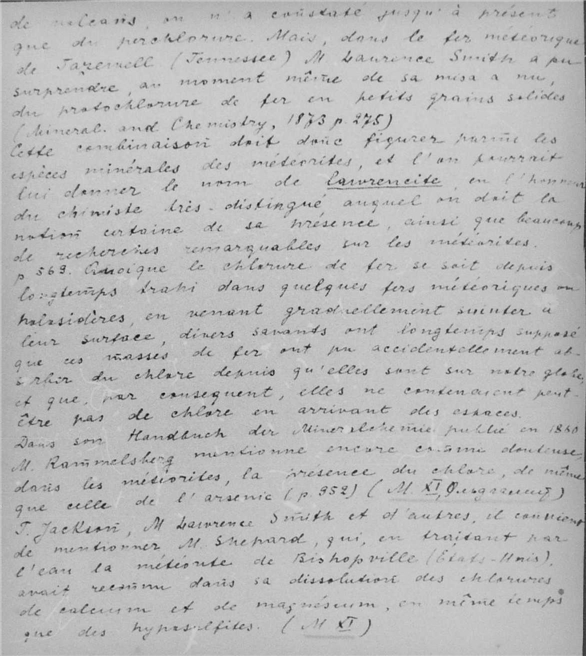 de volcans, on n'a constaté jusqu'à présent
que du perchlorure. Mais, dans le fer météorique
de Tazewell (Tennessee) M Laurence Smith a pu
surprendre, au moment même de sa misa a nu,
du protochlorure de fer en petits grains solides
(Mineral. and Chemistry, 1873 p. 275)
Cette combinaison doit donc figurer parmie les
espèces minérales des météorites, et l'on pourrait
lui donner le nom de lawrencite, en l'honneur
du chimiste très-distingué auquel on doit la
notion certaine de sa présence, ainsi que beaucoup
de recherches remarquables sur les météorites.
p 569. Quoique le chlorure de fer se soit depuis
longtemps trahi dans quelques fers météoriques ou
holosidères, en venant graduellement suinter a
leur surface, divers savants ont longtemps supposé
que ces masses de fer ont pu accidentellement ab-
sorber du chlore depuis qu'elles sont sur notre globe,
et que, par conséquent, elles ne contenaient peut-
être pas de chlore en arrivant des espaces.
Dans son Handbuch der Mineralchemie publié en 1860
M. Rammelsberg mentionne encore comme douteuse,
dans les météorites, la présence du chlore, de même
que celle de l'arsenic (p. 952) (M. XI,
T. Jackson, M Lawrence Smith et d'autres, il convient
de mentionner, M. Shepard, qui, en traitant par
l'eau la météorite de Bishopville (États-Unis),
avait reconnu dans sa dissolution des chlorures
de calcium et de magnésium, en même temps
que des hyposulfites. (M XI)